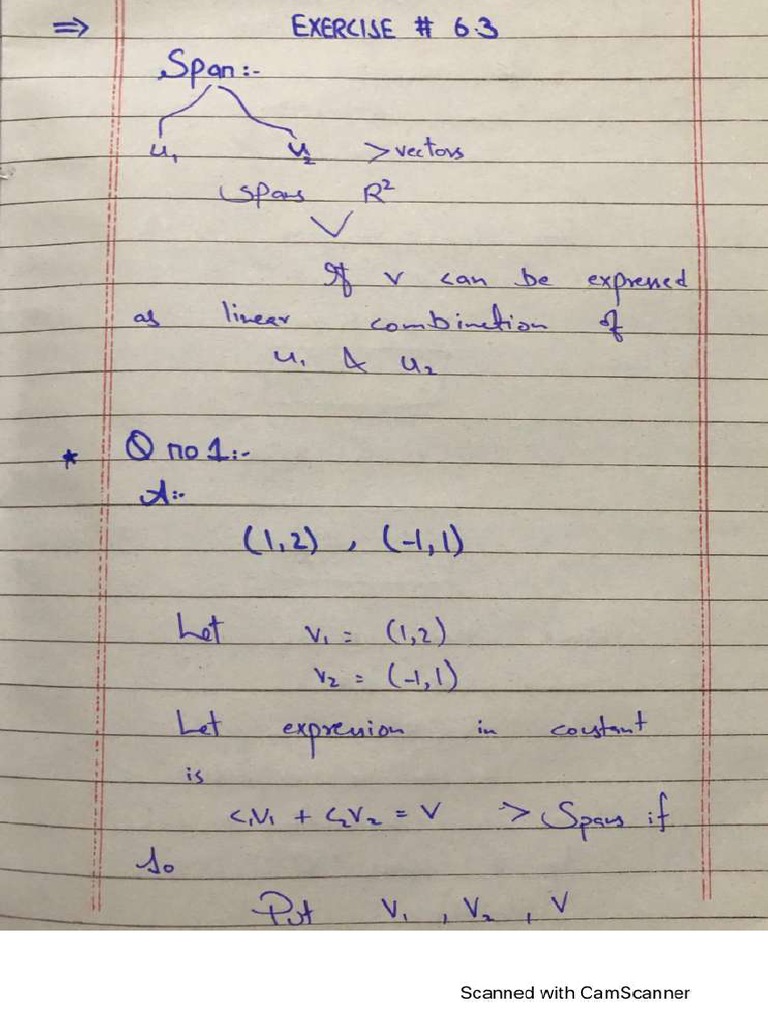 ⇒ EXERCISE # 6.3
Span :-
u₁ u₂ > vectors
Spans R²
If v can be expressed
as linear combination of
u₁ & u₂
* Q no 1:-
A:-
(1,2) , (-1,1)
Let v₁ = (1,2)
v₂ = (-1,1)
Let expression in constant
is
c₁v₁ + c₂v₂ = v > Spans if
So
Put v₁ , v₂ , v
Scanned with CamScanner